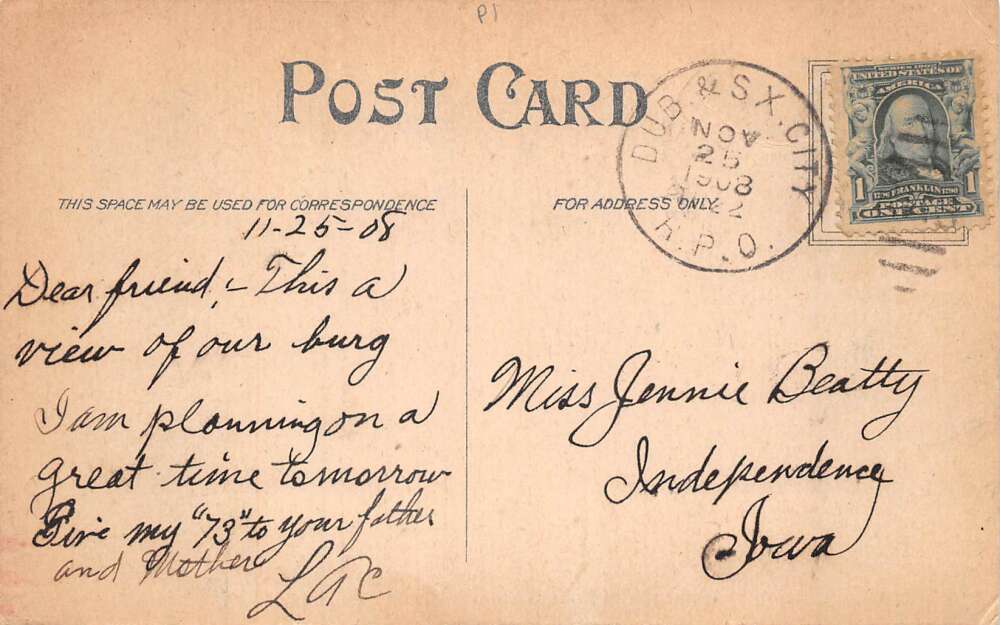 P1
POST CARD
THIS SPACE MAY BE USED FOR CORRESPONDENCE
FOR ADDRESS ONLY
DUB. & S.X. CITY
NOV
25
1908
R.P.O.
UNITED STATES OF
AMERICA
1 FRANKLIN 1
POSTAGE
ONE CENT
11-25-08
Dear friend,- This a
view of our burg
I am planning on a
great time tomorrow
Give my "73" to your father
and Mother
LAC
Miss Jennie Beatty
Independence
Iowa